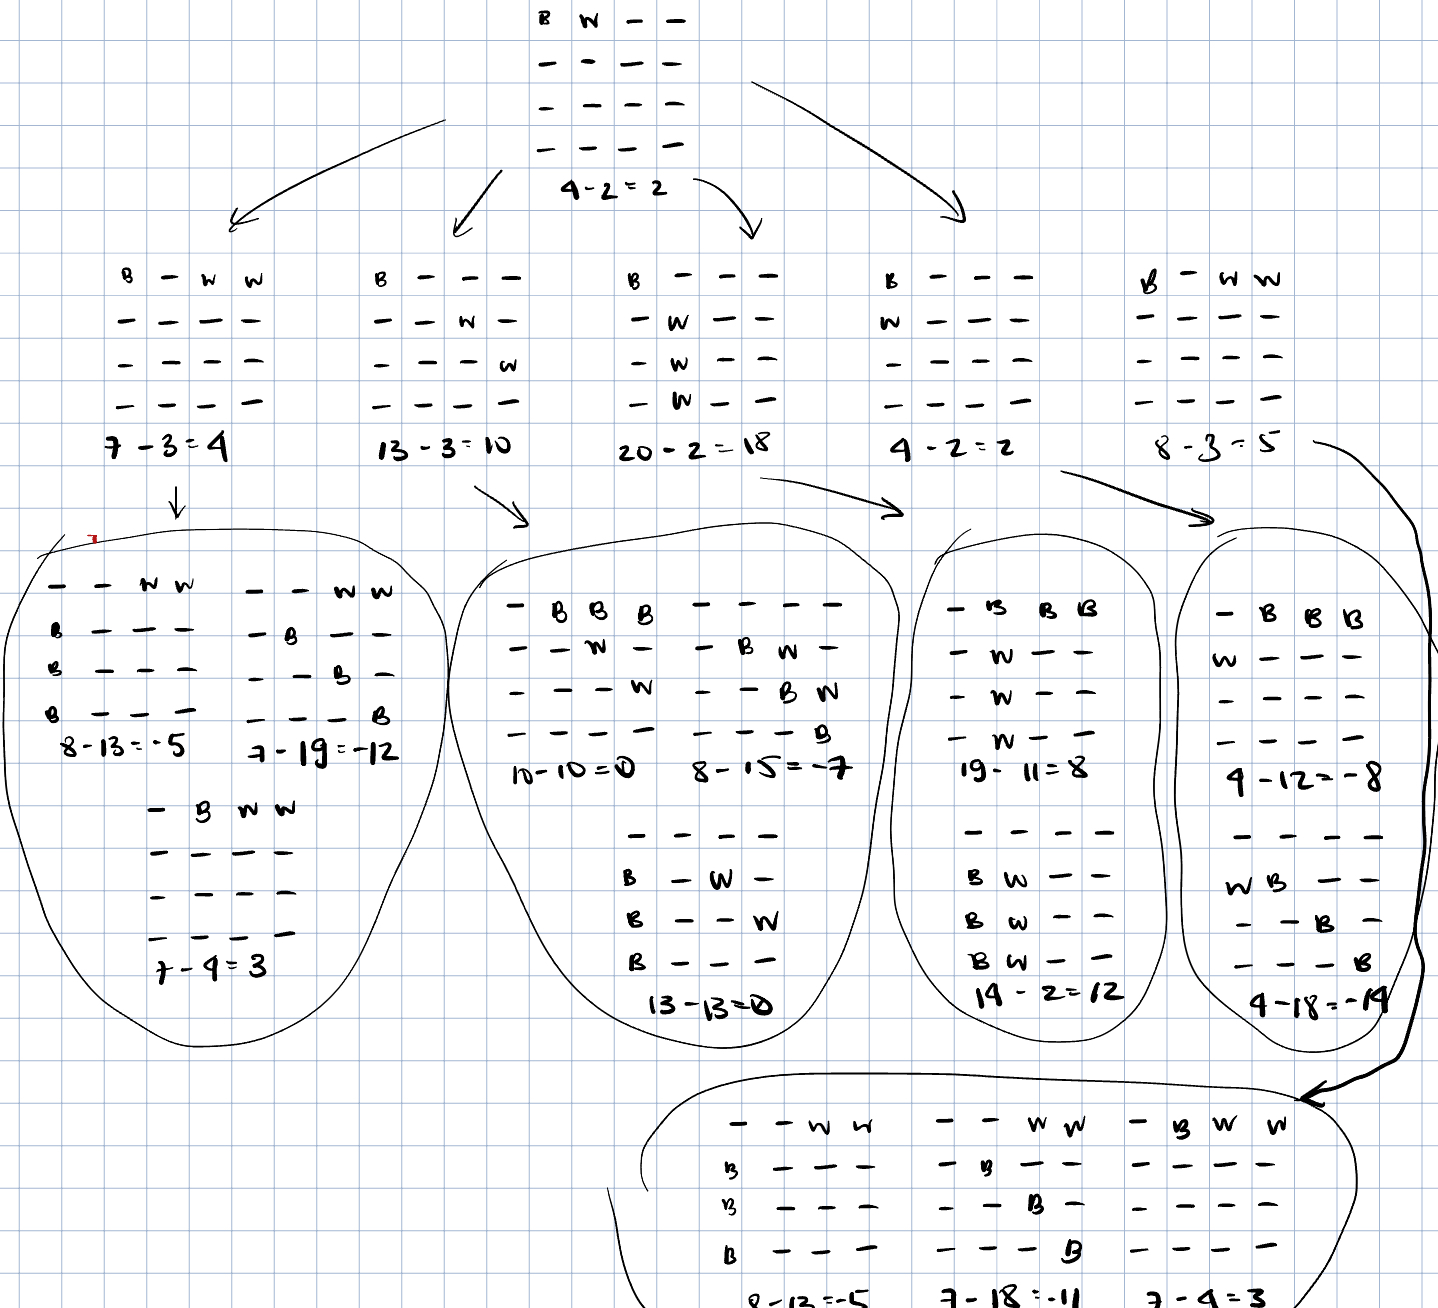 B W - -
- - - -
- - - -
- - - -
4-2=2
B - W W
- - - -
- - - -
- - - -
7-3=4
B - - -
- - W -
- - - W
- - - -
13-3=10
B - - -
- W - -
- W - -
- W - -
20-2=18
B - - -
W - - -
- - - -
- - - -
4-2=2
B - W W
- - - -
- - - -
- - - -
8-3=5
- - W W
B - - -
B - - -
B - - -
8-13=-5
- - W W
- B - -
- - B -
- - - B
7-19=-12
- B W W
- - - -
- - - -
- - - -
7-4=3
- B B B
- - W -
- - - W
- - - -
10-10=0
- - - -
- B W -
- - B W
- - - B
8-15=-7
- - - -
B - W -
B - - W
B - - -
13-13=0
- B B B
- W - -
- W - -
- W - -
19-11=8
- - - -
B W - -
B W - -
B W - -
14-2=12
- B B B
W - - -
- - - -
- - - -
4-12=-8
- - - -
W B - -
- - B -
- - - B
4-18=-14
- - W W
B - - -
B - - -
B - - -
8-13=-5
- - W W
- B - -
- - B -
- - - B
7-18=-11
- B W W
- - - -
- - - -
- - - -
7-4=3